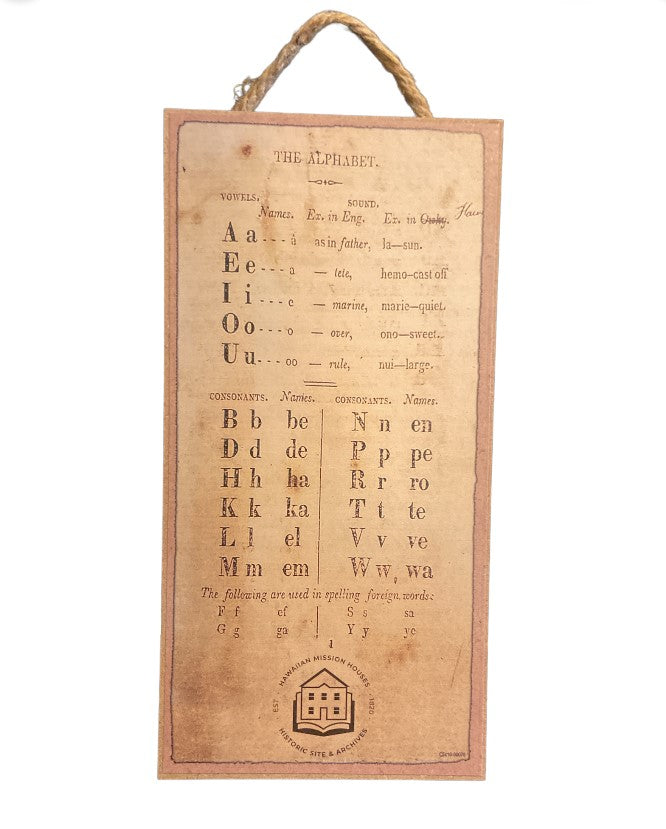 THE ALPHABET.
VOWELS. SOUND.
Names. Ex. in Eng. Ex. in Owhy. Haw
A a - - - - á as in father, la—sun.
E e - - - - a — tete, hemo—cast off
I i - - - - e — marine, marie—quiet.
O o - - - - o — over, ono—sweet.
U u - - - - oo — rule, nui—large.
CONSONANTS. Names. CONSONANTS. Names.
B b be N n en
D d de P p pe
H h ha R r ro
K k ka T t te
L l el V v ve
M m em W w, wa
The following are used in spelling foreign words:
F f ef S s sa
G g ga Y y ye
1
HAWAIIAN MISSION HOUSES
EST 1820
HISTORIC SITE & ARCHIVES